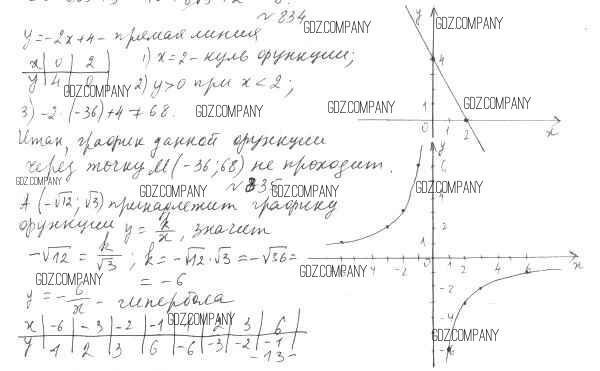 № 834
y = -2x+4 - прямая линия
x | 0 | 2
y | 4 | 0
1) x = 2 - нуль функции;
2) y > 0 при x < 2;
3) -2·(-36)+4 ≠ 68.
Итак, график данной функции
через точку M(-36; 68) не проходит.
№ 835
A (-√12; √3) принадлежит графику
функции y = k/x, значит
-√12 = k/√3 ; k = -√12·√3 = -√36 =
= -6
y = -6/x - гипербола
x | -6 | -3 | -2 | -1 | 1 | 2 | 3 | 6
y | 1 | 2 | 3 | 6 | -6 | -3 | -2 | -1
-13-
y
4
1
0
2
x
y
6
4
1
-4
-2
0
1
2
4
6
x
-2
-4
-6
GDZ.COMPANY
GDZ.COMPANY
GDZ.COMPANY
GDZ.COMPANY
GDZ.COMPANY
GDZ.COMPANY
GDZ.COMPANY
GDZ.COMPANY
GDZ.COMPANY
GDZ.COMPANY
GDZ.COMPANY
GDZ.COMPANY
GDZ.COMPANY
GDZ.COMPANY